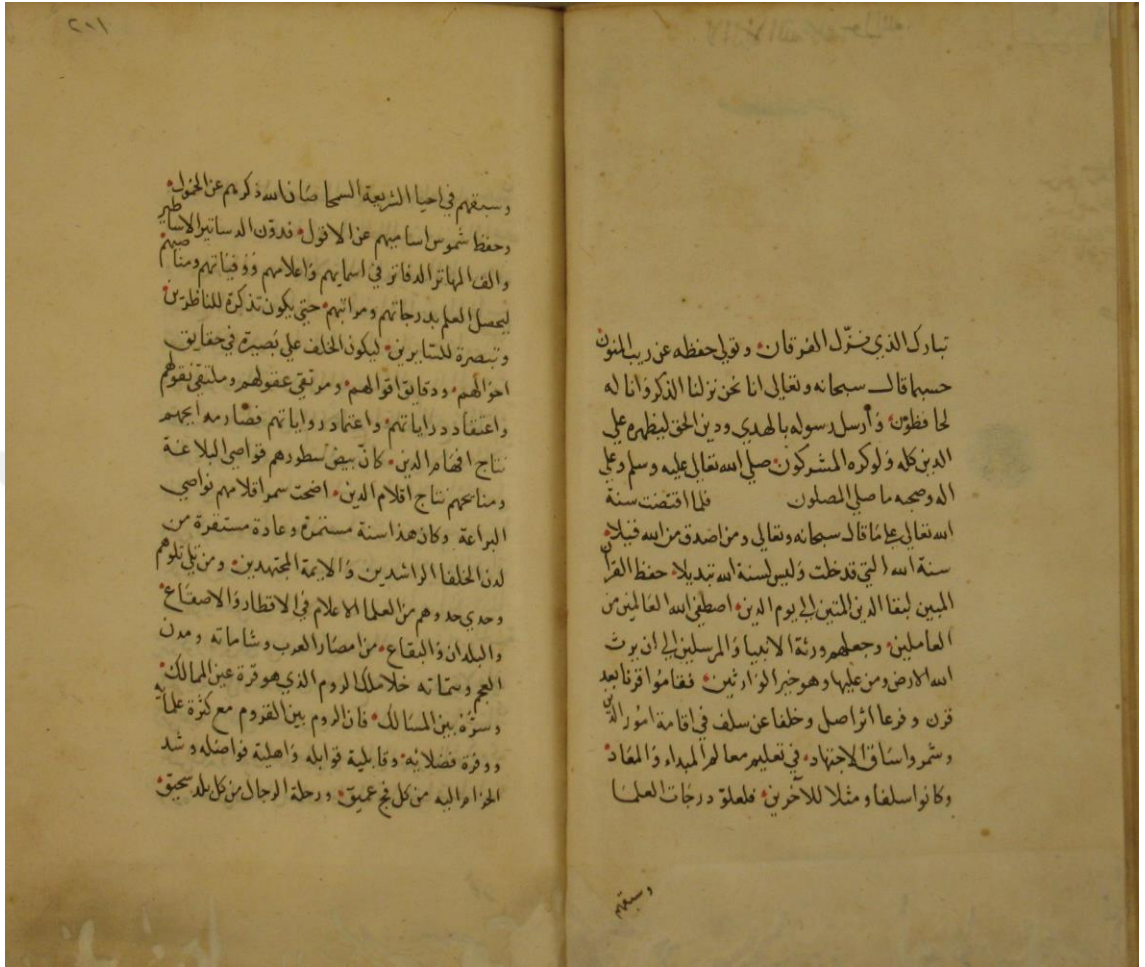 تبارك الذي نزّل الفرقان وتولى حفظه عن ريب المنون
حسبما قال سبحانه وتعالى انا نحن نزلنا الذكر وانا له
لحافظون وأرسل رسوله بالهدي ودين الحق ليظهره علي
الدين كله ولو كره المشركون صلى الله تعالى عليه وسلم وعلي
اله وصحبه ما صلي المصلون فلما اقتضت سنة
الله تعالى على ما قال سبحانه وتعالى ومن اصدق من الله قيلا
سنة الله التي قد خلت وليس لسنة الله تبديلا حفظ القرآن
المبين لبقا الدين المتين الي يوم الدين اصطفى الله العالمين من
العاملين وجعلهم ورثة الانبيا والمرسلين الي ان يرث
الله الارض ومن عليها وهو خير الوارثين فقاموا قرنا بعد
قرن وفرعا اثر اصل وخلفا عن سلف في اقامة امور الدين
وشمروا ساق الاجتهاد في تعليم معالم المبداء والمعاد
وكانوا سلفا ومثلا للآخرين فلعلوّ درجات العلما
وسبقهم
٢٠١
وسبقهم في احيا الشريعة السمحا صان الله ذكرهم عن الخمول
وحفظ شموس اساميهم عن الافول فدوّن الدساتير الاساطير
والف المهاتر الدفاتر في اسمايهم واعلامهم ووفياتهم ومناصبهم
ليحصل العلم بدرجاتهم ومراتبهم حتي يكون تذكرة للناظرين
وتبصرة للسايرين ليكون الخلف علي بصيرة في حقايق
احوالهم ودقايق اقوالهم ومرتقي عقولهم وملتقي نقولهم
واعتقاد دراياتهم واعتماد رواياتهم فصار مدايحهم
نتاج افهام الدين كانّ بيض سطورهم قواصي البلاغة
ومنايحهم نتاج اقلام الدين اضحت سمر اقلامهم نواصي
البراعة وكان هذا سنة مستمرة وعادة مستقرة من
لدن الخلفا الراشدين والايمة المجتهدين ومن يلي تلوهم
وحدي حدوهم من العلما الاعلام في الاقطار والاصقاع
والبلدان والبقاع من امصار العرب وشاماته ومدن
العجم وستاته خلا ملك الروم الذي هو قرة عين الممالك
وسرّة بين المسالك فان الروم بين القروم مع كثرة علمائه
ووفرة فضلائه وقابلية قوابله واهلية فواضله وشد
الحزام اليه من كل فج عميق ورحلة الرجال من كل بلد سحيق